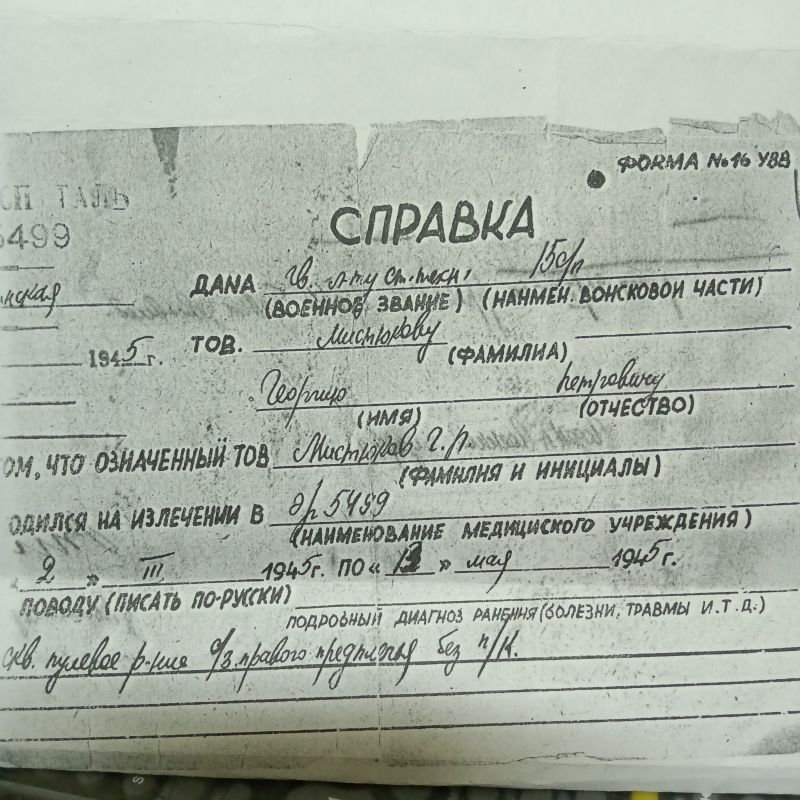 ФОРМА №16 УВВ
СП ТАЛЬ
5499
СПРАВКА
нская
ДАNА гв. л-ту ст. техн. 150/п
(ВОЕННОЕ ЗВАНИЕ) (НАНМЕН. ВОНСКОВОЙ ЧАСТИ)
1945г. ТОВ. Мистюкову
(ФАМИЛИА)
Георгию Петровичу
(ИМЯ) (ОТЧЕСТВО)
ОМ, ЧТО ОЗНАЧЕННЫЙ ТОВ Мистюков Г. П.
(ФАМИЛНЯ И ИНИЦИАЛЫ)
ОДИЛСЯ НА ИЗЛЕЧЕНИИ В 5499
(НАИМЕНОВАНИЕ МЕДИЦИСКОГО УЧРЕЖДЕНИЯ)
2 » III 1945г. ПО « » мая 1945г.
ПОВОДУ (ПИСАТЬ ПО-РУССКИ)
ПОДРОБНЫЙ ДИАГНОЗ РАНЕНИЯ (БОЛЕЗНИ, ТРАВМЫ И.Т.Д.)
скв. пулевое р-ние с/з. правого предплечья без п/к.